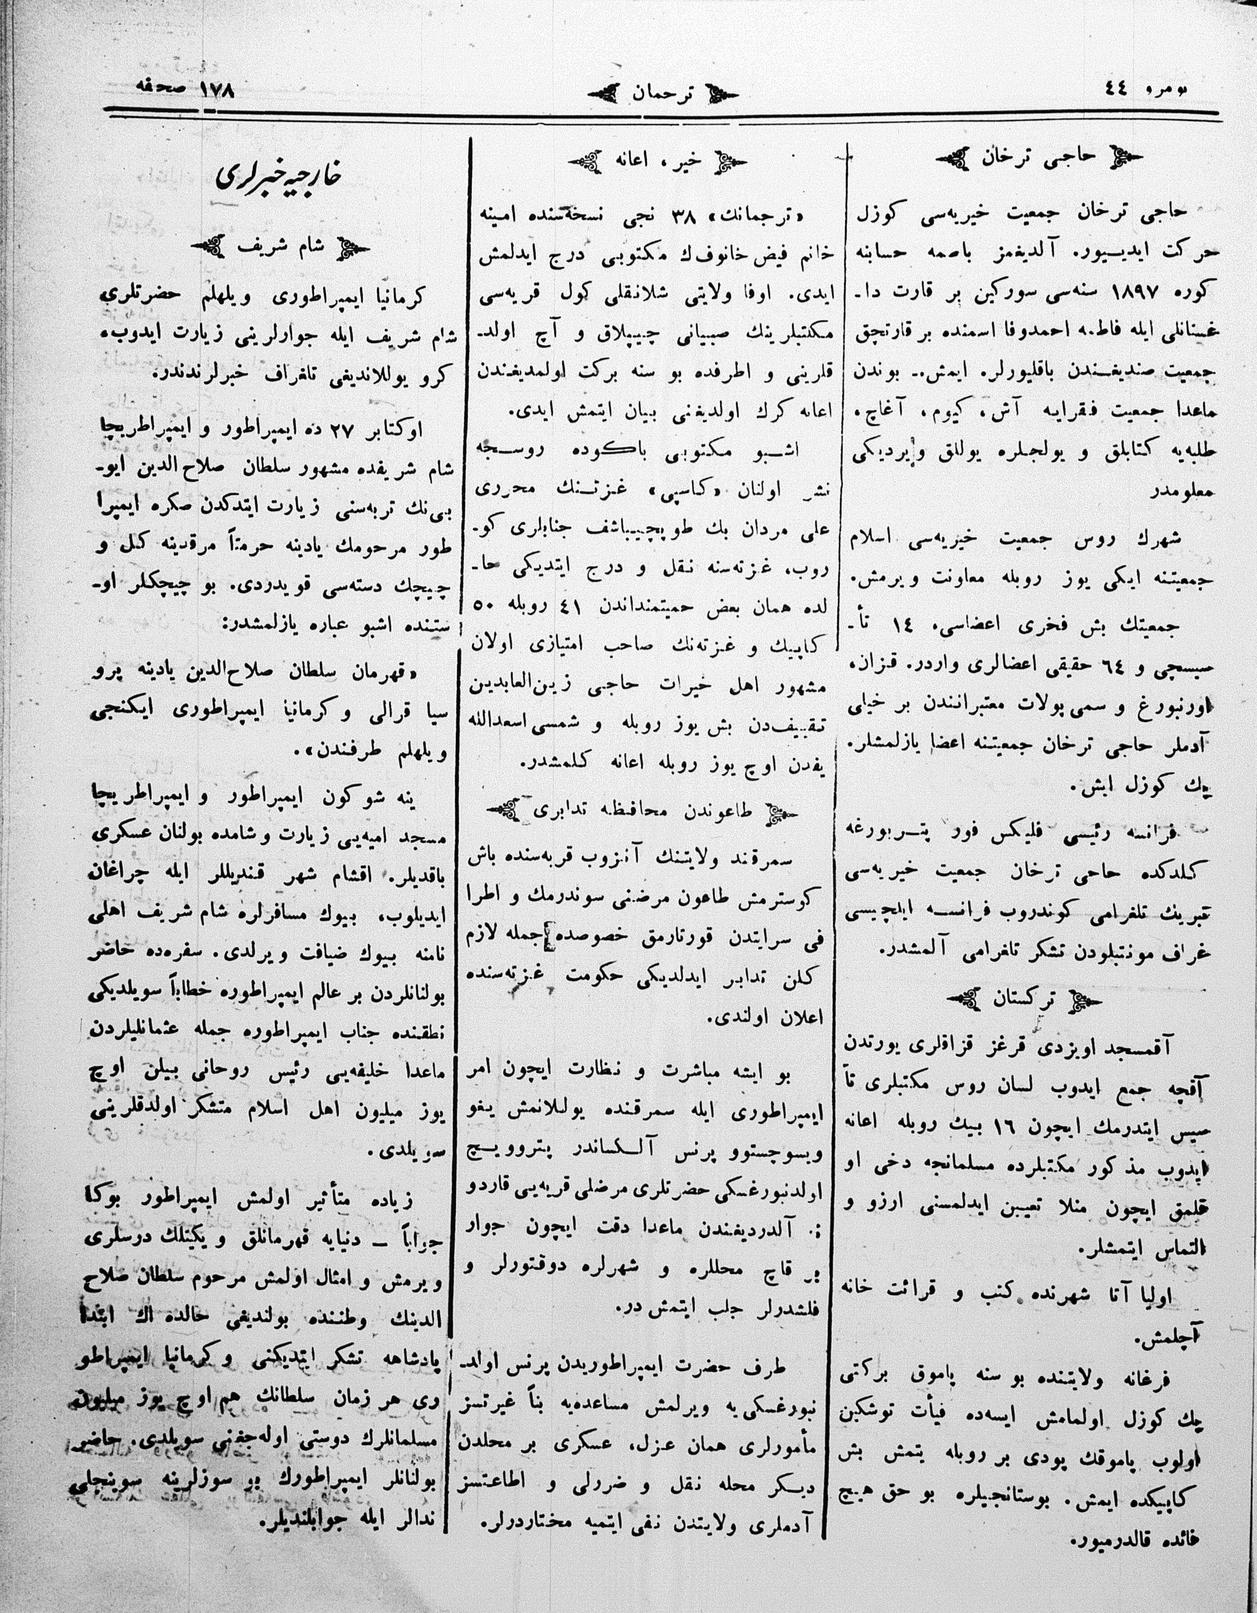 نومرو ٤٤
ترجمان
١٧٨ صحفه
حاجی ترخان
حاجی ترخان جمعیت خیریه‌سی کوزل
حرکت ایدییور. آلدیغمز باصمه حسابنه
کوره ١٨٩٧ سنه‌سی سورکین بر قارت دا-
غستانلی ایله فاطمه احمدوفا اسمنده بر قارتچق
جمعیت صندیغندن باقلیورلر. ایمش. بوندن
ماعدا جمعیت فقرایه آش، کیوم، آغاچ،
طلبه‌یه کتابلق و یولجلره یوللق ویردیکی
معلومدر
شهرك روس جمعیت خیریه‌سی اسلام
جمعیتنه ایکی یوز روبله معاونت ویرمش.
جمعیتك بش فخری اعضاسی، ١٤ تأ-
سیسچی و ٦٤ حقیقی اعضالری واردر. قزان،
اورنبورغ و سمی پولات معتبرانندن بر خیلی
آدملر حاجی ترخان جمعیتنه اعضا یازلمشلر.
پك کوزل ایش.
فرانسه رئیسی فلیکس فور پتربورغه
کلدکده حاجی ترخان جمعیت خیریه‌سی
تبریك تلغرامی کوندروب فرانسه ایلچیسی
غراف مونتبلودن تشکر تلغرامی آلمشدر.
ترکستان
آقمسجد اویزدی قرغز قزاقلری یورتدن
آقچه جمع ایدوب لسان روس مکتبلری تأ
سیس ایتدرمك ایچون ١٦ بیك روبله اعانه
ایدوب مذکور مکتبلرده مسلمانجه دخی او
قلمق ایچون منلا تعیین ایدلمسنی ارزو و
التماس ایتمشلر.
اولیا آتا شهرنده کتب و قرائت خانه
آچلمش.
فرغانه ولایتنده بو سنه پاموق برکتی
پك کوزل اولمامش ایسه‌ده فیأت توشکین
اولوب پاموقك پودی بر روبله یتمش بش
کاپیکده ایمش. بوستانجیلره بو حق هیچ
فائده قالدرمیور.
خیر، اعانه
«ترجمانك» ٣٨ نجی نسخه‌سنده امینه
خانم فیض خانوف‌ك مکتوبی درج ایدلمش
ایدی. اوفا ولایتی شلانقلی کول قریه‌سی
مکتبلرینك صبیانی چیپلاق و آچ اولد-
قلرینی و اطرفده بو سنه برکت اولمدیغندن
اعانه کرك اولدیغنی بیان ایتمش ایدی.
اشبو مکتوبی باکوده روسجه
نشر اولنان «کاسپی» غزتنك محرری
علی مردان بك طوپچیباشف جنابلری کو-
روب، غزته‌سنه نقل و درج ایتدیکی حا-
لده همان بعض حمیتمنداندن ٤١ روبله ٥٠
کاپیك و غزته‌نك صاحب امتیازی اولان
مشهور اهل خیرات حاجی زین‌العابدین
تقییف‌دن بش یوز روبله و شمسی اسعدالله
یف‌دن اوچ یوز روبله اعانه کلمشدر.
طاعوندن محافظه تدابری
سمرقند ولایتنك آنزوب قریه‌سنده باش
کوسترمش طاعون مرضنی سوندرمك و اطرا
فی سرایتدن قورتارمق خصوصده جمله لازم
کلن تدابر ایدلدیکی حکومت غزته‌سنده
اعلان اولندی.
بو ایشه مباشرت و نظارت ایچون امر
ایمپراطوری ایله سمرقنده یوللانمش یغو
ویسوچستوو پرنس آلکساندر پتروویچ
اولدنبورغسکی حضرتلری مرضلی قریه‌یی قاردو
ن آلدردیغندن ماعدا دقت ایچون جوار
بر قاچ محللره و شهرلره دوقتورلر و
فلشدرلر جلب ایتمش در.
طرف حضرت ایمپراطوریدن پرنس اولد-
نبورغسکی‌یه ویرلمش مساعده‌یه بنأً غیرتسز
مأمورلری همان عزل، عسکری بر محلدن
دیکر محله نقل و ضررلی و اطاعتسز
آدملری ولایتدن نفی ایتمیه مختاردرلر.
خارجیه خبرلری
شام شریف
کرمانیا ایمپراطوری ویلهلم حضرتلری
شام شریف ایله جوارلرینی زیارت ایدوب،
کرو یوللاندیغی تلغراف خبرلرندندر.
اوکتابر ٢٧ ده ایمپراطور و ایمپراطریچا
شام شریفده مشهور سلطان صلاح الدین ایو-
بی‌نك تربه‌سنی زیارت ایتدکدن صکره ایمپرا
طور مرحومك یادینه حرمتاً مرقدینه کل و
چیچك دسته‌سی قویدردی. بو چیچکلر او-
ستنده اشبو عباره یازلمشدر:
«قهرمان سلطان صلاح‌الدین یادینه پرو
سیا قرالی و کرمانیا ایمپراطوری ایکنجی
ویلهلم طرفندن».
ینه شو کون ایمپراطور و ایمپراطریچا
مسجد امیه‌یی زیارت و شامده بولنان عسکری
باقدیلر. اقشام شهر قندیللر ایله چراغان
ایدیلوب، بیوك مسافرلره شام شریف اهلی
نامنه بیوك ضیافت ویرلدی. سفره‌ده حاضر
بولنانلردن بر عالم ایمپراطوره خطاباً سویلدیکی
نطقنده جناب ایمپراطوره جمله عثمانلیلردن
ماعدا خلیفه‌یی رئیس روحانی بیلن اوچ
یوز میلیون اهل اسلام متشکر اولدقلرینی
سویلدی.
زیاده متأثیر اولمش ایمپراطور بوکا
جواباً – دنیایه قهرمانلق و یکیتلك دوسلری
ویرمش و امثال اولمش مرحوم سلطان صلاح
الدینك وطننده بولندیغی حالده اك ابتدا
پادشاهه تشکر ایتدیکنی و کرمانیا ایمپراطو
ری هر زمان سلطانك هم اوچ یوز میلیون
مسلمانلرك دوستی اوله‌جغنی سویلدی. حاضر
بولنانلر ایمپراطورك بو سوزلرینه سوینجلی
ندالر ایله جوابلندیلر.